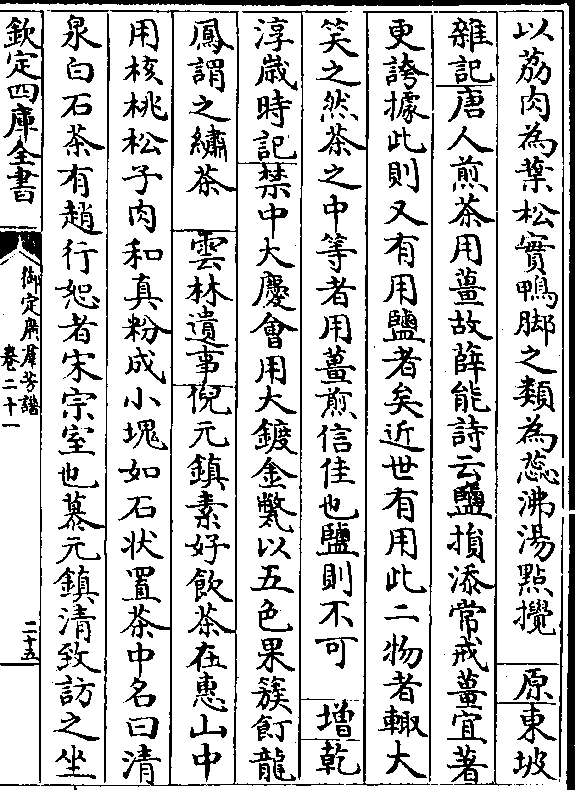 以荔肉為葉松實鴨脚之類為蕊沸湯點攪　原東坡
雜記唐人煎茶用薑故薛能詩云鹽損添常戒薑宜著
更誇據此則又有用鹽者矣近世有用此二物者輙大
笑之然茶之中等者用薑煎信佳也鹽則不可　增乾
淳歲時記禁中大慶會用大鍍金㼽以五色果簇飣龍
鳳謂之繡茶　雲林遺事倪元鎮素好飲茶在惠山中
用核桃松子肉和真粉成小塊如石状置茶中名曰清
泉白石茶有趙行恕者宋宗室也慕元鎮清致訪之坐
欽定四庫全書
御定廣羣芳譜
卷二十一
二十五